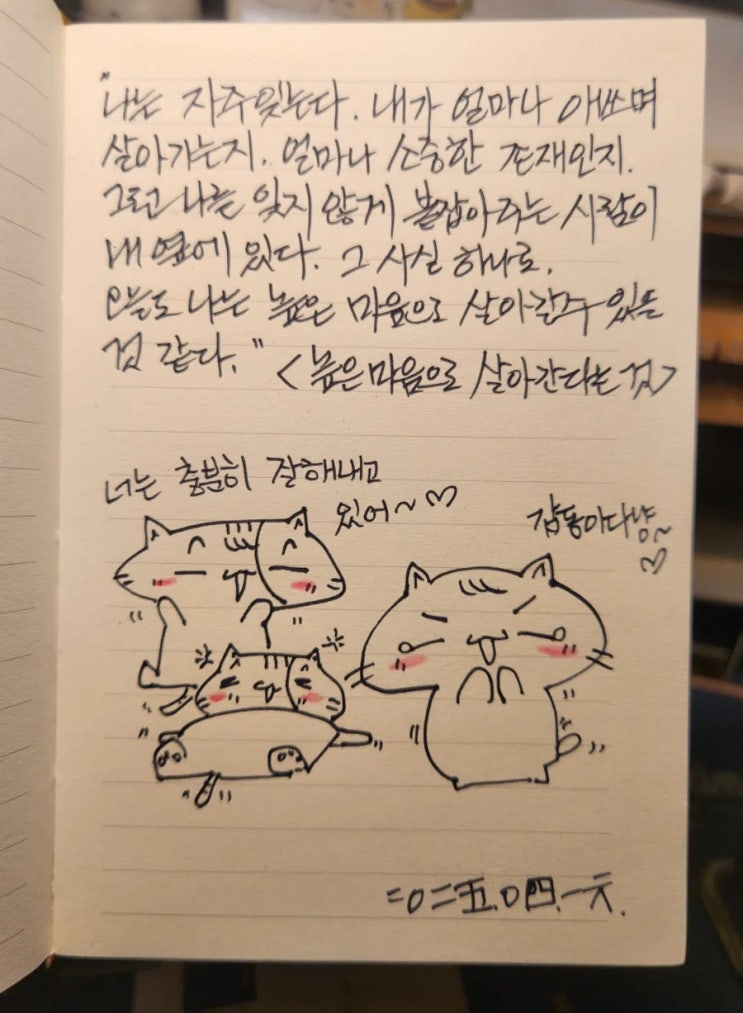 "나는 자주잊는다. 내가 얼마나 애쓰며
살아가는지. 얼마나 소중한 존재인지.
그리고 나를 잊지 않게 붙잡아주는 사람이
내 옆에 있다. 그 사실 하나로,
오늘도 나는 높은 마음으로 살아갈수 있을
것 같다."
<높은마음으로 살아간다는 것>
너는 충분히 잘해내고
있어~♡
감동이다냥~
♡
二〇二五.〇四.一六.